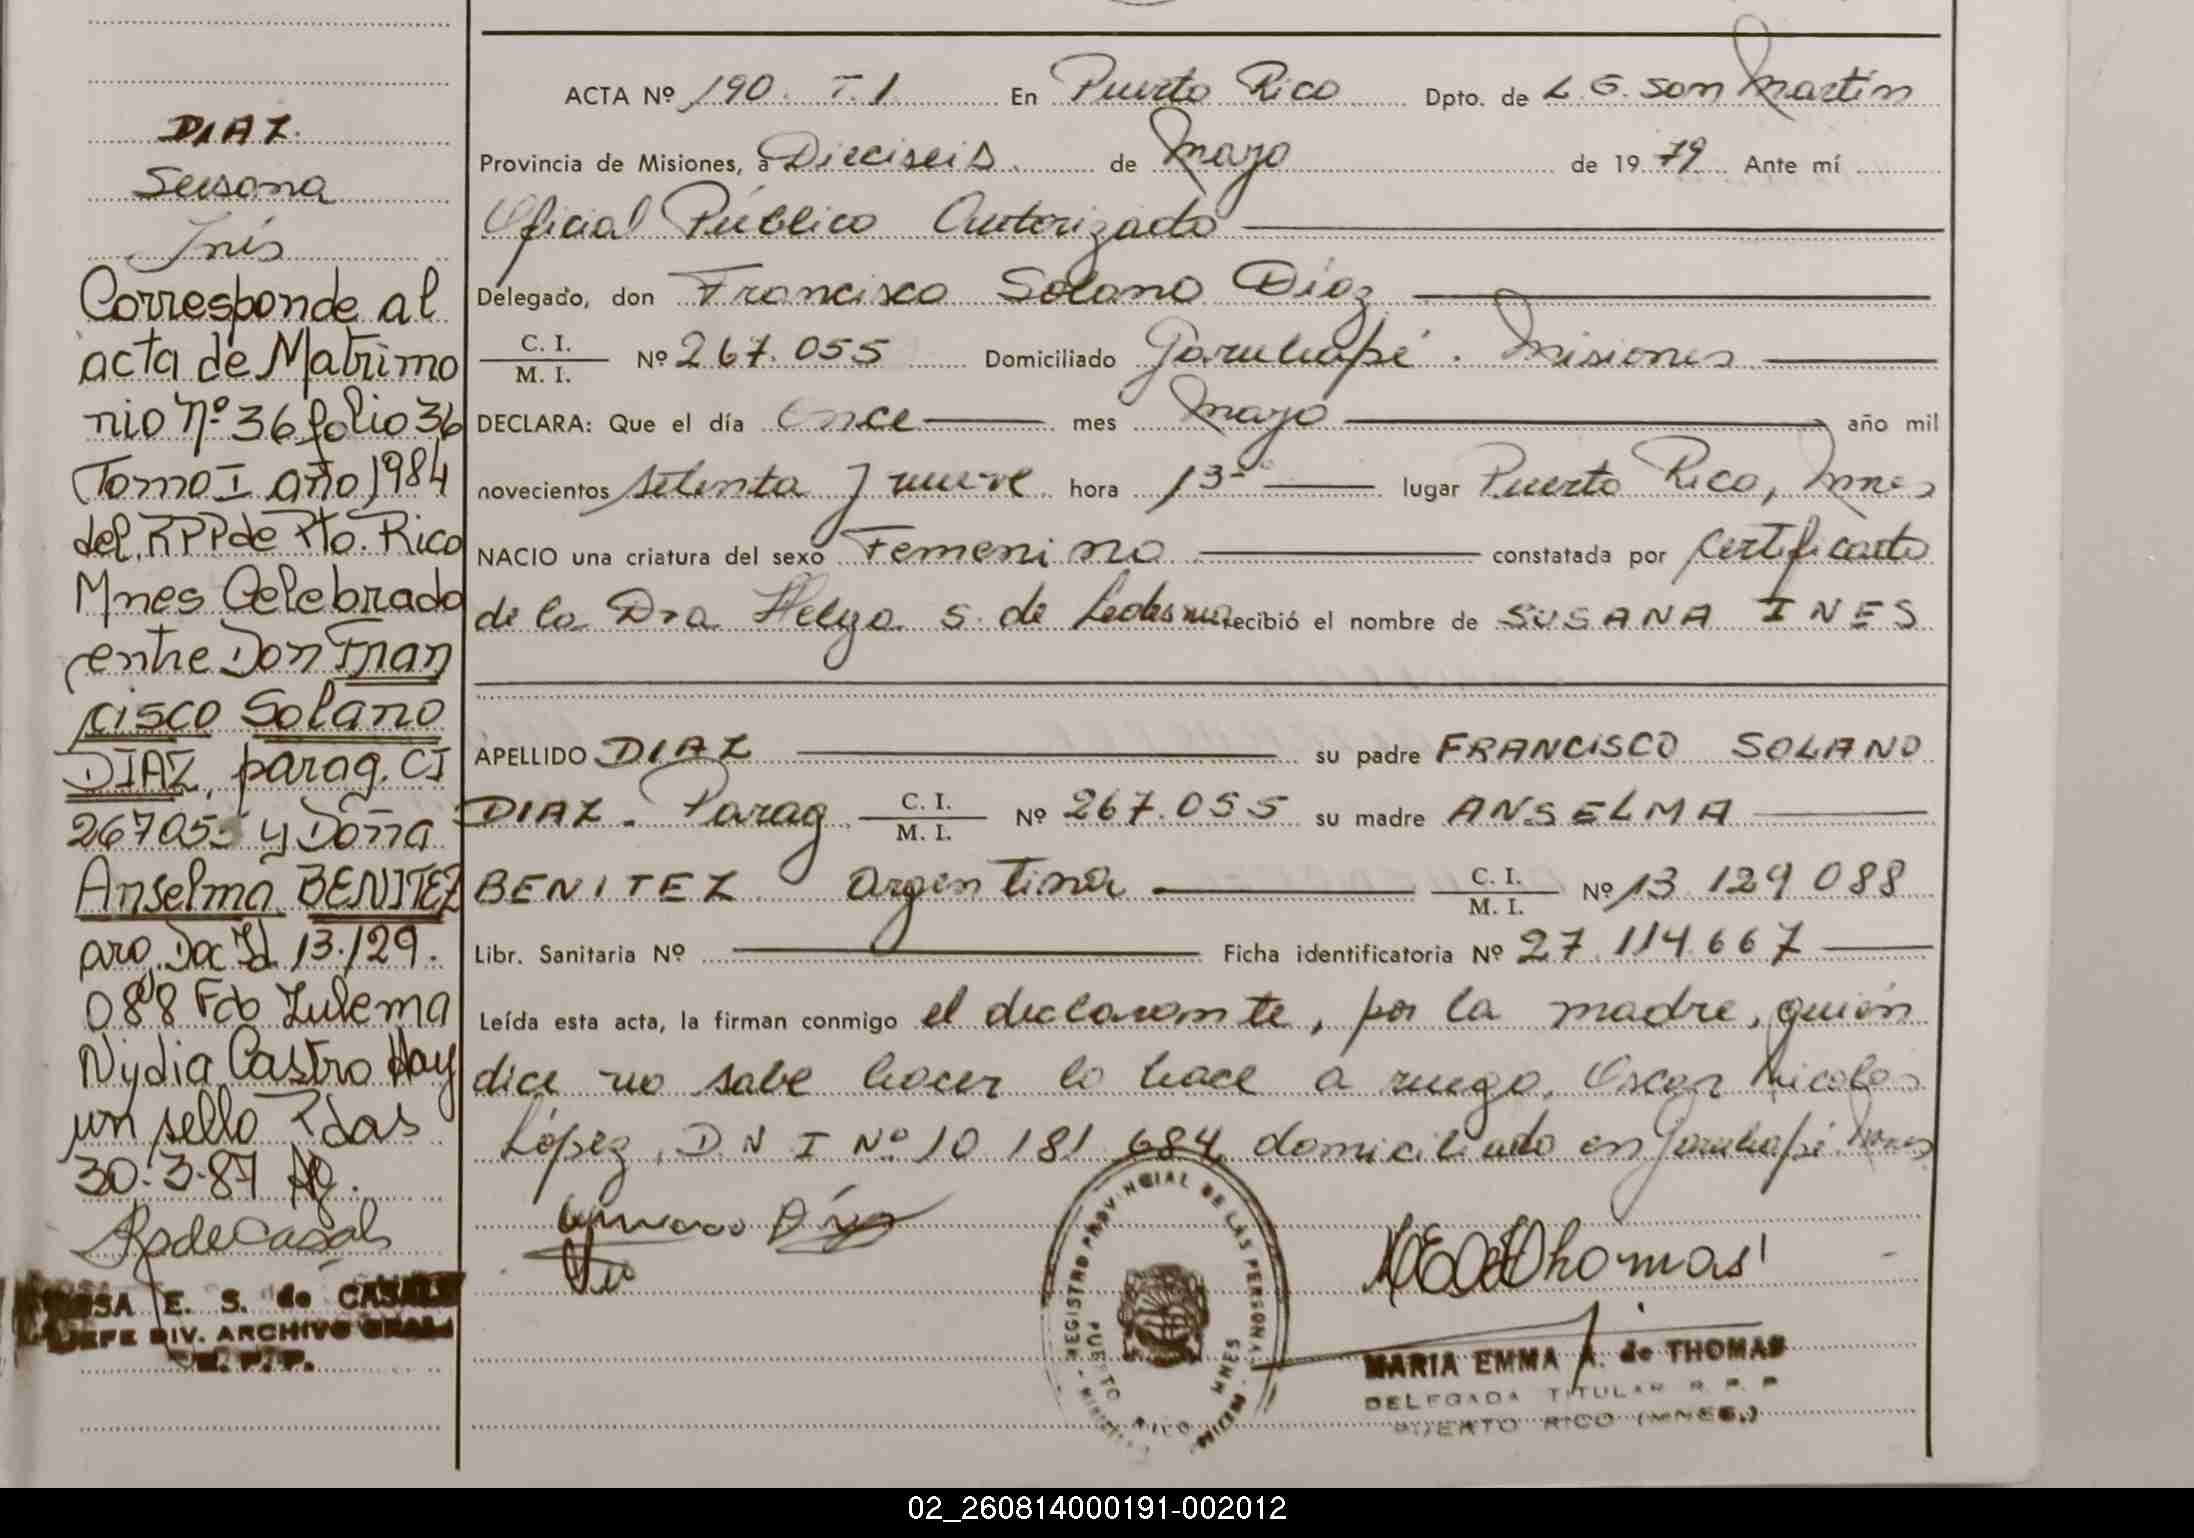 DIAZ.
Susana
Inés
Corresponde al
acta de Matrimo
nio Nº 36 folio 36
Tomo I año 1984
del RPP de Pto. Rico
Mnes Celebrado
entre Don Fran
cisco Solano
DIAZ, parag. CI
267055 y Doña
Anselma BENITEZ
arg. Doc Id. 13.129.
088 Fdo Zulema
Nydia Castro Hay
un sello Pdas
30.3.87
RsdeCasals
ROSA E. S. de CASALS
JEFE DIV. ARCHIVO GRAL.
R. P. P.
ACTA Nº 190. T.1 En Puerto Rico Dpto. de L. G. San Martín
Provincia de Misiones, a Dieciseis de Mayo de 1979 Ante mí
Oficial Público Autorizado
Delegado, don Francisco Solano Díaz
C. I.
M. I. Nº 267.055 Domiciliado Garuhapé. Misiones
DECLARA: Que el día Once mes Mayo año mil
novecientos setenta y nueve hora 13 lugar Puerto Rico, Mnes
NACIO una criatura del sexo Femenino constatada por certificado
de la Dra Helga S. de Ledesma recibió el nombre de SUSANA INES
APELLIDO DIAZ su padre FRANCISCO SOLANO
DIAZ. Parag. C. I.
M. I. Nº 267.055 su madre ANSELMA
BENITEZ Argentina C. I.
M. I. Nº 13 129 088
Libr. Sanitaria Nº Ficha identificatoria Nº 27.114.667
Leída esta acta, la firman conmigo el declarante, por la madre, quién
dice no sabe hacer lo hace a ruego, Oscar Nicolás
López, D N I Nº 10 181 684 domiciliado en Garuhapé. Mnes
REGISTRO PROVINCIAL DE LAS PERSONAS
PUERTO RICO MNES
MARIA EMMA A. de THOMAS
DELEGADA TITULAR R. P. P
PUERTO RICO (MNES.)
02_260814000191-002012